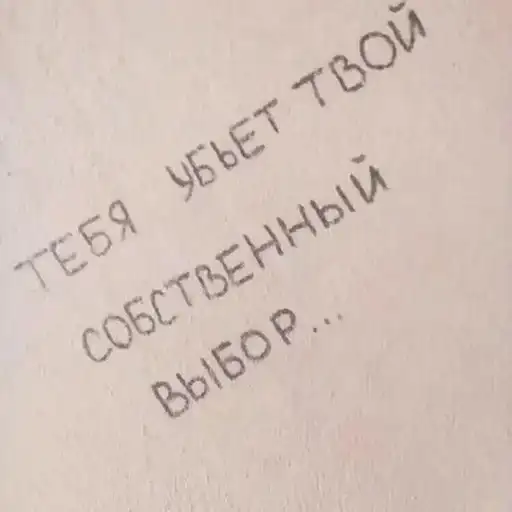 ТЕБЯ УБЬЕТ ТВОЙ
СОБСТВЕННЫЙ
ВЫБОР...